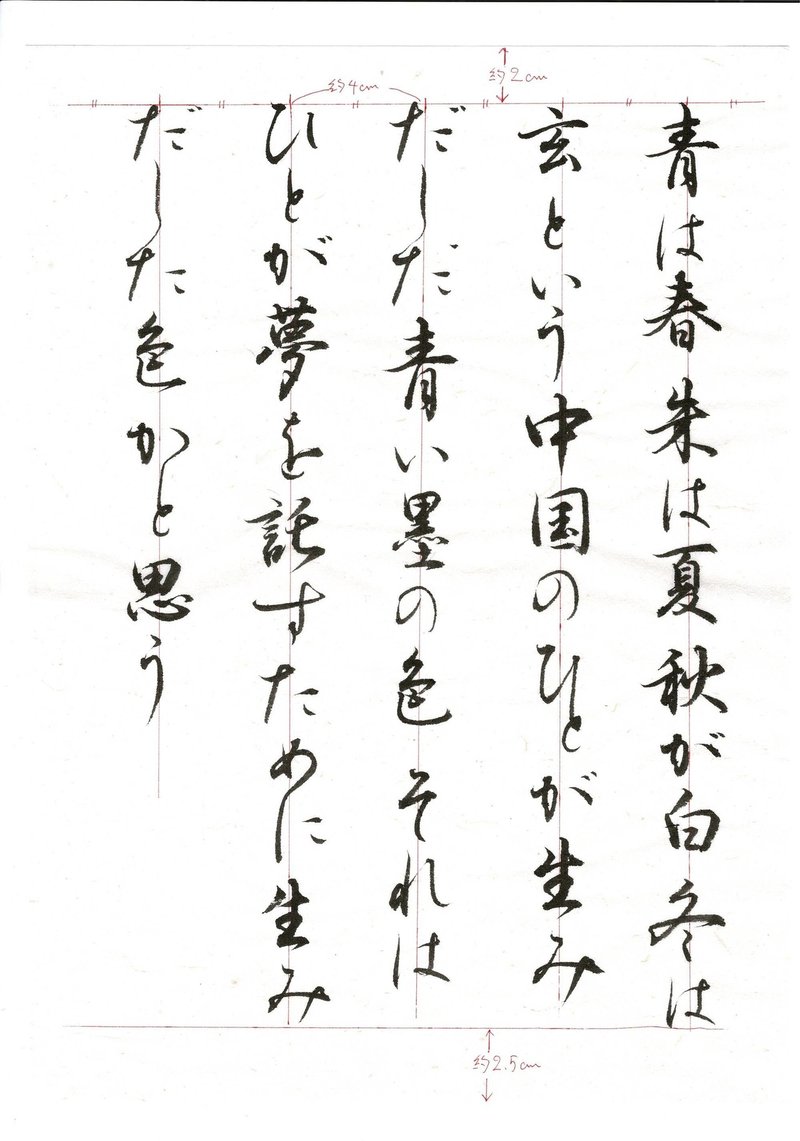 青は春朱は夏秋が白冬は
玄という中国のひとが生み
だしだ青い墨の色それは
ひとが夢を託すために生み
だした色かと思う
約4cm
約2cm
約2.5cm